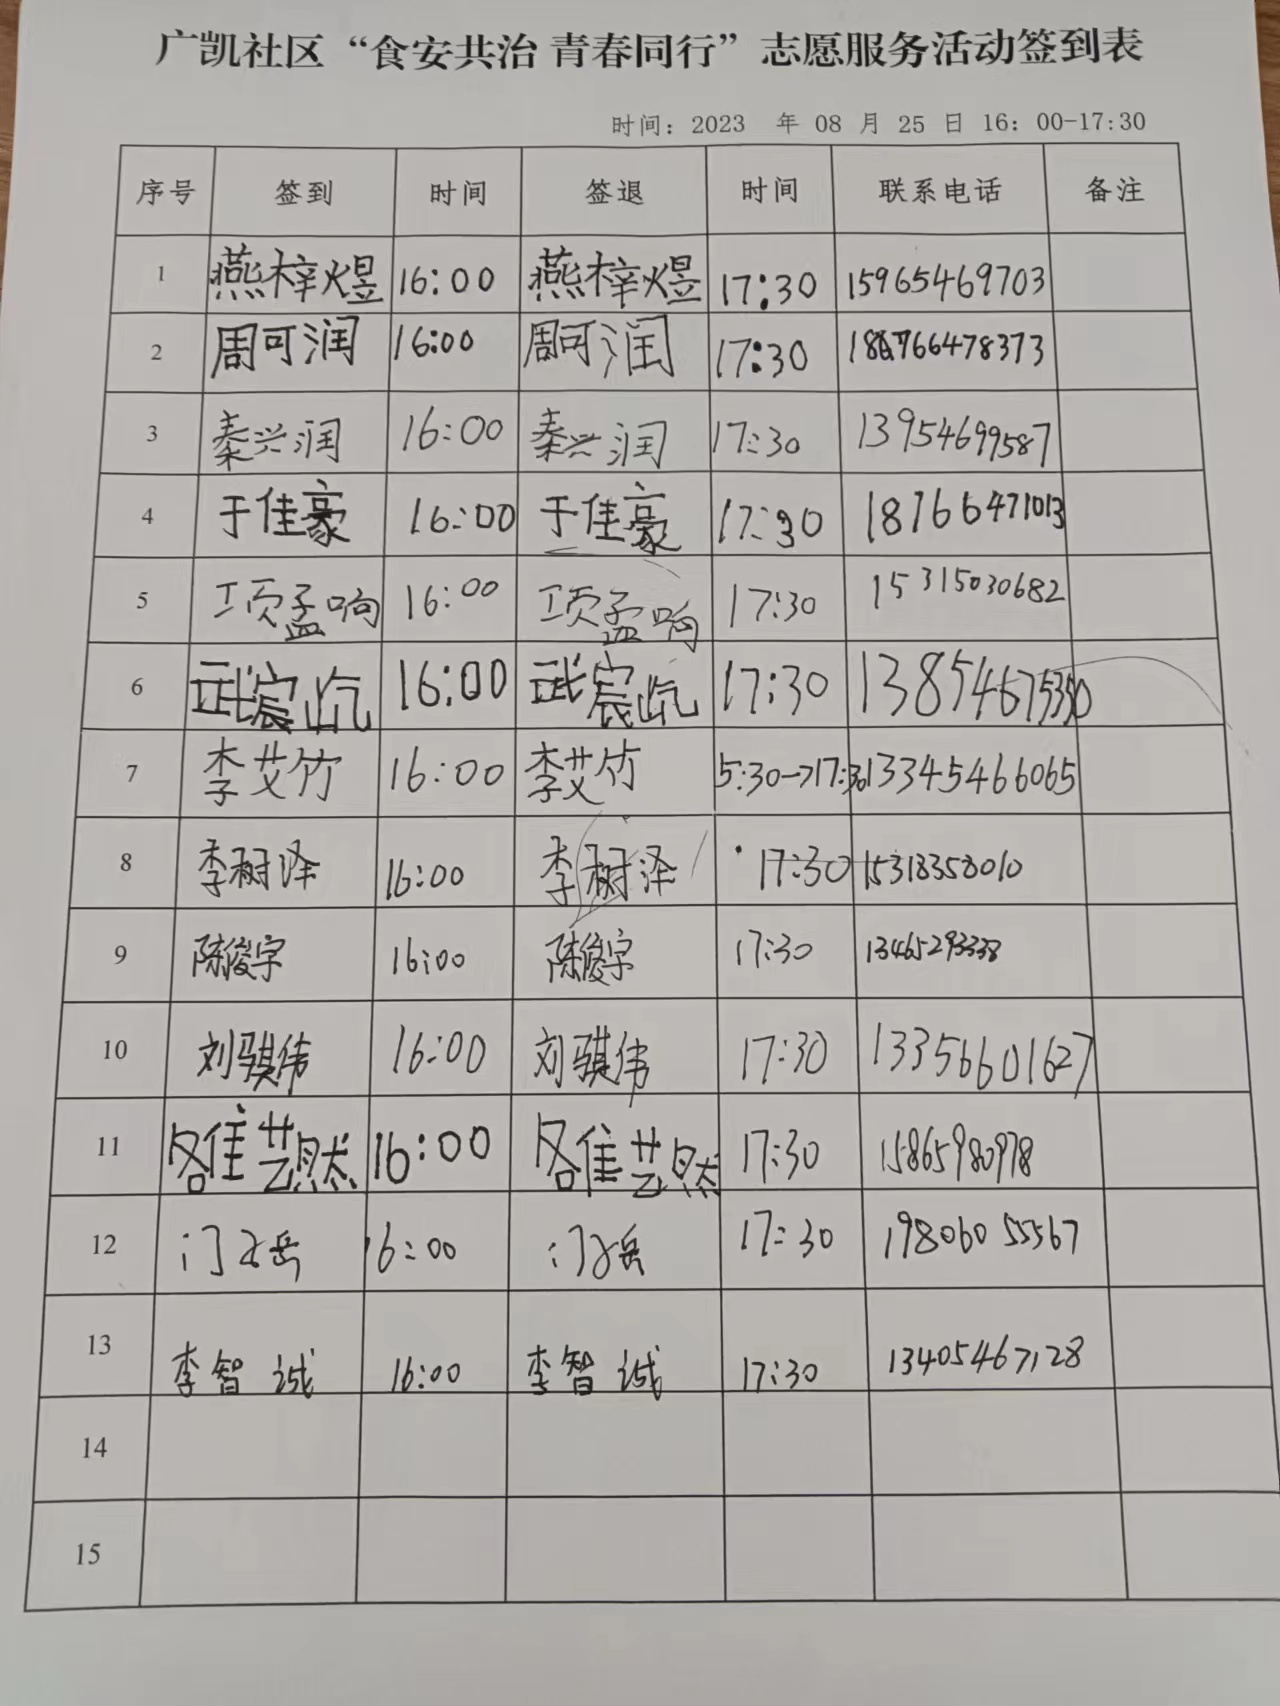 广凯社区“食安共治 青春同行”志愿服务活动签到表
时间：2023 年 08 月 25 日 16：00-17:30
序号 签到 时间 签退 时间 联系电话 备注
1 燕梓煜 16:00 燕梓煜 17:30 15965469703
2 周可润 16:00 周可润 17:30
3 秦兴润 16:00 秦兴润 17:30 13954699587
4 于佳豪 16:00 于佳豪 17:30 18766471013
5 项孟响 16:00 项孟响 17:30 15315030682
6 武宸屹 16:00 武宸屹 17:30
7 李艾竹 16:00 李艾竹 5:30→17:30 13345466065
8 李树泽 16:00 李树泽 17:30 15318358010
9 陈俊宇 16:00 陈俊宇 17:30 13465293338
10 刘骐伟 16:00 刘骐伟 17:30 13356601627
11 16:00 17:30 15865980978
12 16:00 17:30 19806055567
13 李智诚 16:00 李智诚 17:30 13405467128
14
15